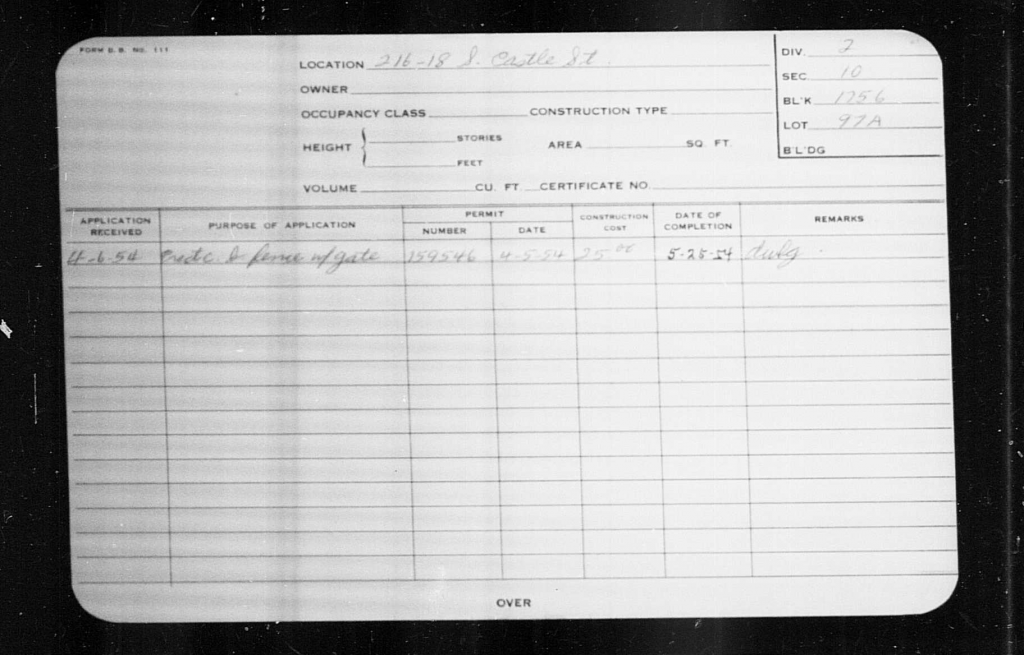 FORM B. B. No. 111
LOCATION 216-18 S. Castle St.
OWNER
OCCUPANCY CLASS CONSTRUCTION TYPE
HEIGHT { STORIES AREA SQ. FT.
FEET
VOLUME CU. FT. CERTIFICATE NO.
DIV. 2
SEC 10
BL'K 1756
LOT 97A
B'L'DG
APPLICATION RECEIVED PURPOSE OF APPLICATION PERMIT NUMBER DATE CONSTRUCTION COST DATE OF COMPLETION REMARKS
4-6-54 fence w/gate 159546 4-5-54 25 00 5-25-54 dwlg.
OVER